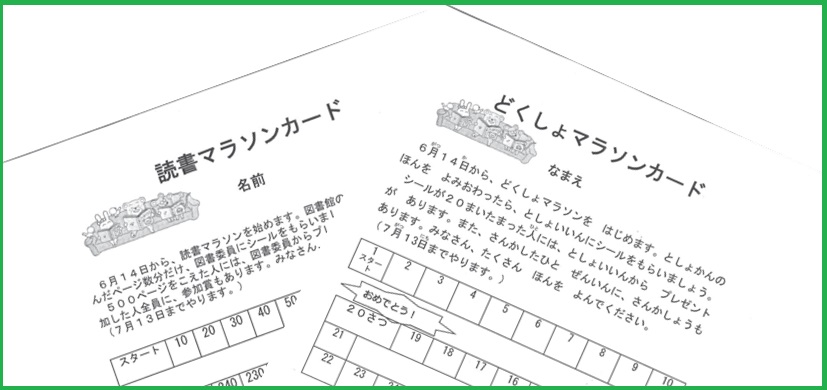 読書マラソンカード
名前
6月14日から、読書マラソンを始めます。図書館の
んだページ数分だけ、図書委員にシールをもらいま
500ページをこえた人には、図書委員からプ
加した人全員に、参加賞もあります。みなさん
(7月13日までやります。)
スタート 10 20 30 40 50
240 230
どくしょマラソンカード
なまえ
6月14日から、どくしょマラソンを はじめます。としょかんの
ほんを よみおわったら、としょいいんにシールをもらいましょう。
シールが20まいたまった人には、としょいいんから プレゼント
が あります。また、さんかしたひと ぜんいんに、さんかしょうも
あります。みなさん、たくさん ほんを よんでください。
(7月13日までやります。)
1 2 3 4 5 6 7 8 9 10
スタート
おめでとう!
20さつ 19 18 17 16 15 14
21
22 23 24